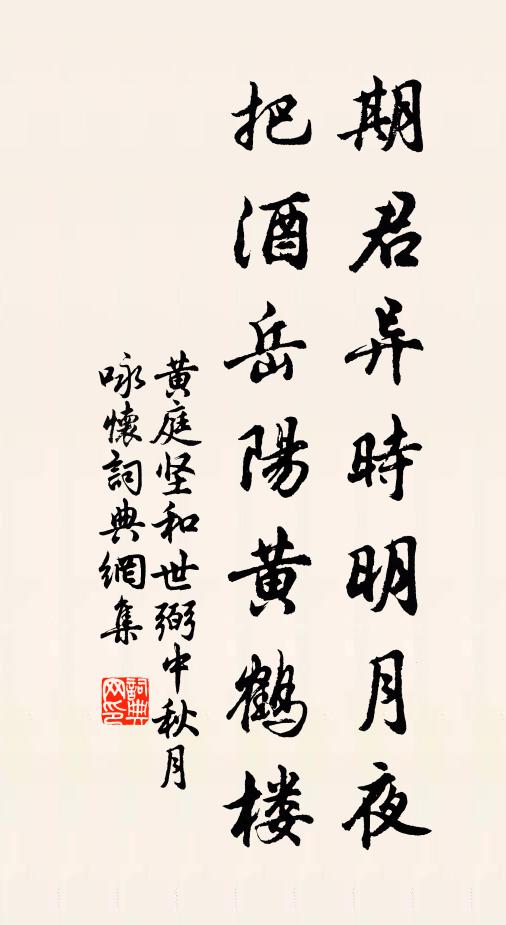 期君异時明月夜
把酒岳陽黄鶴楼
黄庭坚和世弼中秋月
咏懷詞典網集
詞典网印